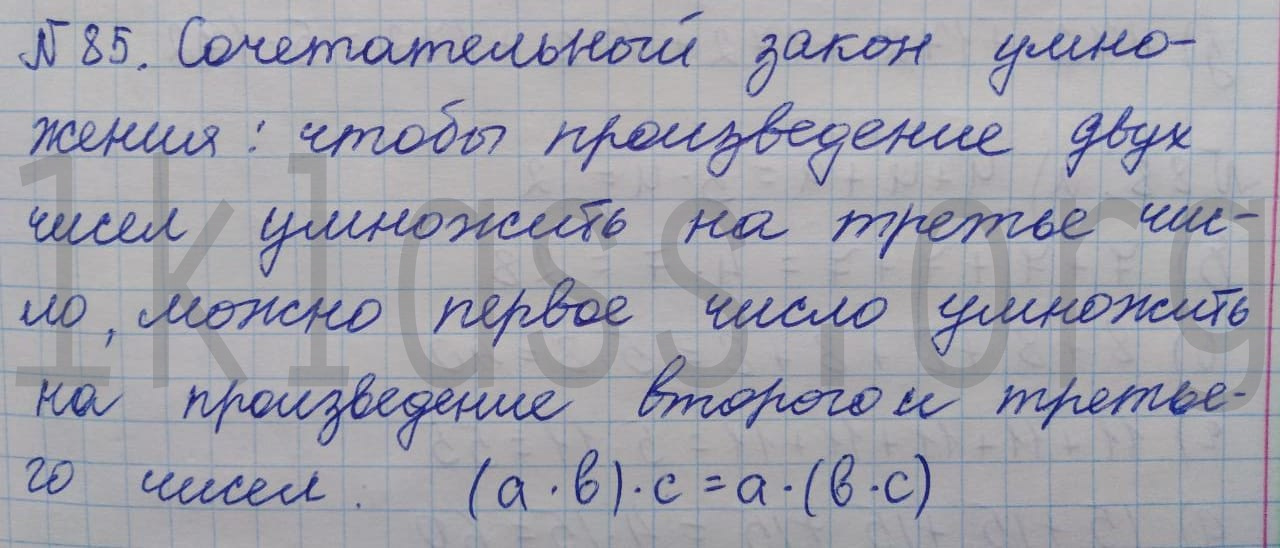 № 85. Сочетательный закон умно-
жения: чтобы произведение двух
чисел умножить на третье чис-
ло, можно первое число умножить
на произведение второго и третье-
го чисел. (а · в) · с = а · (в · с)
1klass.org